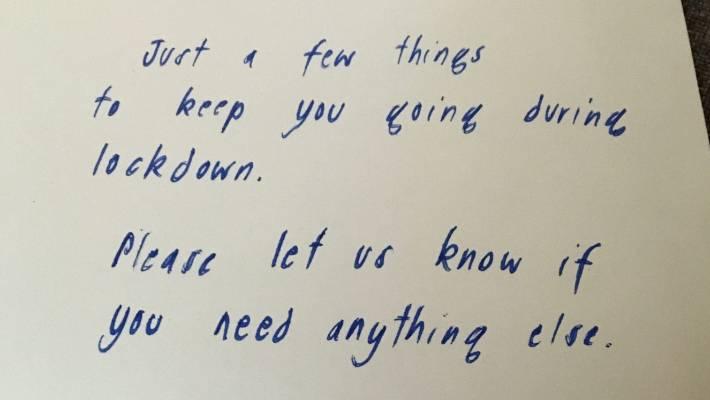 Just a few things
to keep you going during
lockdown.
Please let us know if
you need anything else.